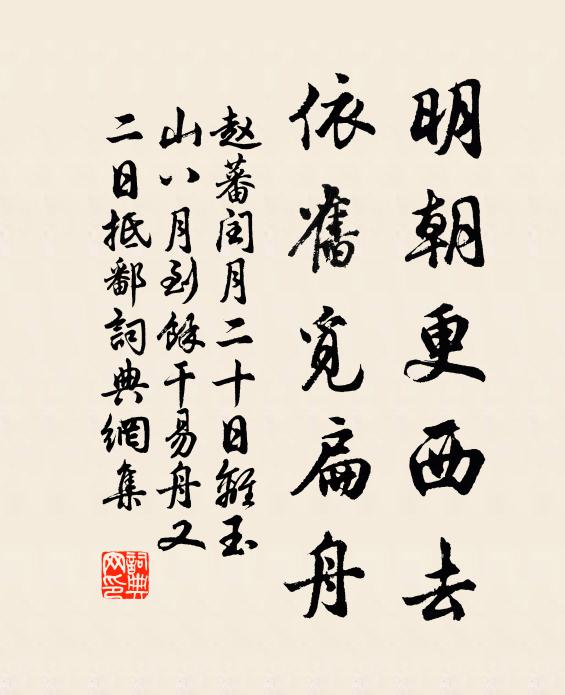 明朝更西去
依舊覓扁舟
赵蕃閏月二十日離玉
山八月到餘干易舟又
二日抵鄱詞典網集
詞典網印